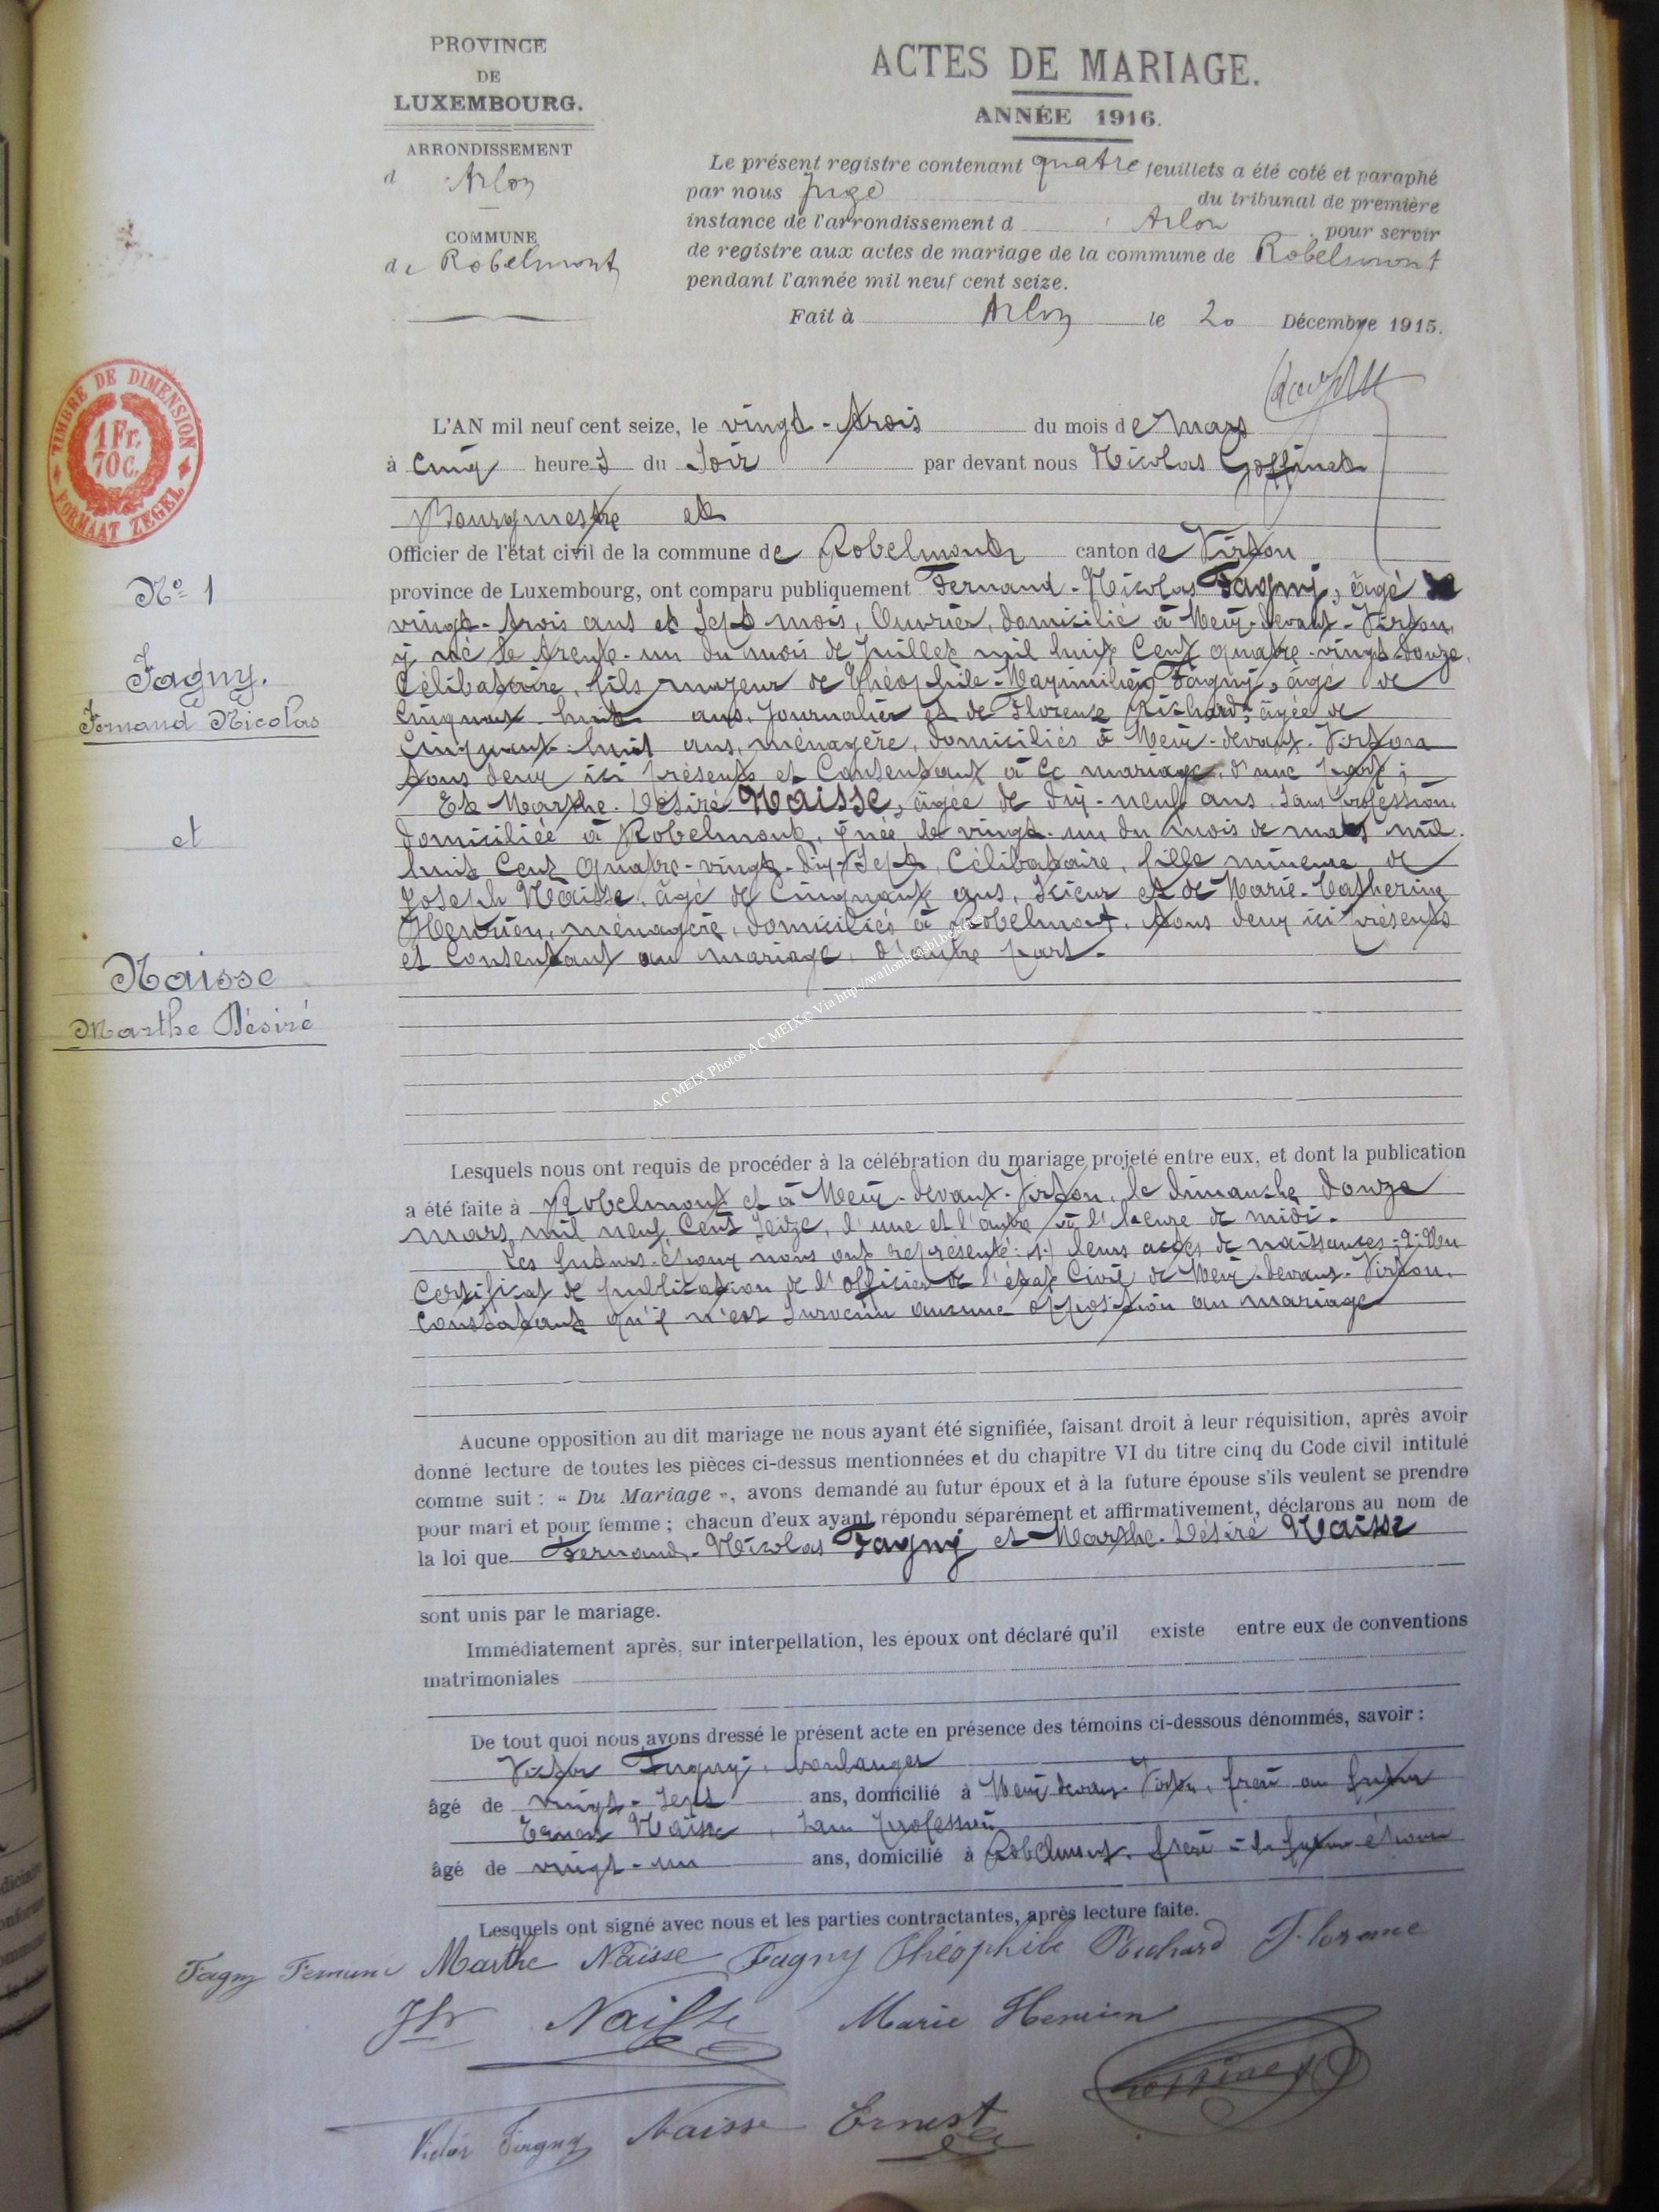 PROVINCE
DE
LUXEMBOURG.
ARRONDISSEMENT
d Arlon
COMMUNE
de Robelmont
ACTES DE MARIAGE.
ANNÉE 1916.
Le présent registre contenant quatre feuillets a été coté et paraphé
par nous Juge du tribunal de première
instance de l'arrondissement d Arlon pour servir
de registre aux actes de mariage de la commune de Robelmont
pendant l'année mil neuf cent seize.
Fait à Arlon le 20 Décembre 1915.
TIMBRE DE DIMENSION
1 Fr.
70 C.
FORMAAT ZEGEL
L'AN mil neuf cent seize, le vingt-trois du mois de Mars
à cinq heures du soir par devant nous Nicolas Goffinet
Bourgmestre et
Officier de l'état civil de la commune de Robelmont canton de Virton
province de Luxembourg, ont comparu publiquement Fernand-Nicolas Fagny, âgé de
vingt-trois ans et sept mois, Ouvrier, domicilié à Meix-devant-Virton,
y né le trente-un du mois de Juillet mil huit cent quatre-vingt-douze,
Célibataire, fils majeur de Théophile-Maximilien Fagny, âgé de
Cinquante-huit ans, Journalier et de Florence Richard, âgée de
Cinquante-huit ans, ménagère, domiciliés à Meix-devant-Virton
tous deux ici présents et Consentant à ce mariage, d'une part;
Et Marthe-Désiré Naisse, âgée de dix-neuf ans, sans profession,
domiciliée à Robelmont, y née le vingt-un du mois de mars mil
huit cent quatre-vingt-dix-sept, Célibataire, fille mineure de
Joseph Naisse, âgé de Cinquante ans, Scieur et de Marie-Catherine
Henrion, ménagère, domiciliés à Robelmont, tous deux ici présents
et Consentant au mariage, d'autre part.
N° 1
Fagny.
Fernand Nicolas
et
Naisse
Marthe Désiré
AC MEIX Photos AC MEIX © Via http://
Lesquels nous ont requis de procéder à la célébration du mariage projeté entre eux, et dont la publication
a été faite à Robelmont et à Meix-devant-Virton, le dimanche douze
mars mil neuf cent seize, l'une et l'autre à l'heure de midi.
Les futurs-époux nous ont représenté: 1) leurs actes de naissances - 2- Un
Certificat de publication de l'officier de l'état Civil de Meix-devant-Virton,
Constatant qu'il n'est survenu aucune opposition au mariage
Aucune opposition au dit mariage ne nous ayant été signifiée, faisant droit à leur réquisition, après avoir
donné lecture de toutes les pièces ci-dessus mentionnées et du chapitre VI du titre cinq du Code civil intitulé
comme suit : « Du Mariage », avons demandé au futur époux et à la future épouse s'ils veulent se prendre
pour mari et pour femme ; chacun d'eux ayant répondu séparément et affirmativement, déclarons au nom de
la loi que Fernand-Nicolas Fagny et Marthe-Désiré Naisse
sont unis par le mariage.
Immédiatement après, sur interpellation, les époux ont déclaré qu'il existe entre eux de conventions
matrimoniales
De tout quoi nous avons dressé le présent acte en présence des témoins ci-dessous dénommés, savoir :
Victor Fagny, boulanger
âgé de vingt-sept ans, domicilié à Meix devant-Virton, frère au futur
Ernest Naisse, sans profession
âgé de vingt-un ans, domicilié à Robelmont, frère à la future épouse
Lesquels ont signé avec nous et les parties contractantes, après lecture faite.
Fagny Fernand Marthe Naisse Fagny Théophile Richard Florence
Jh Naisse Marie Henrion
Goffinet
Victor Fagny Naisse Ernest